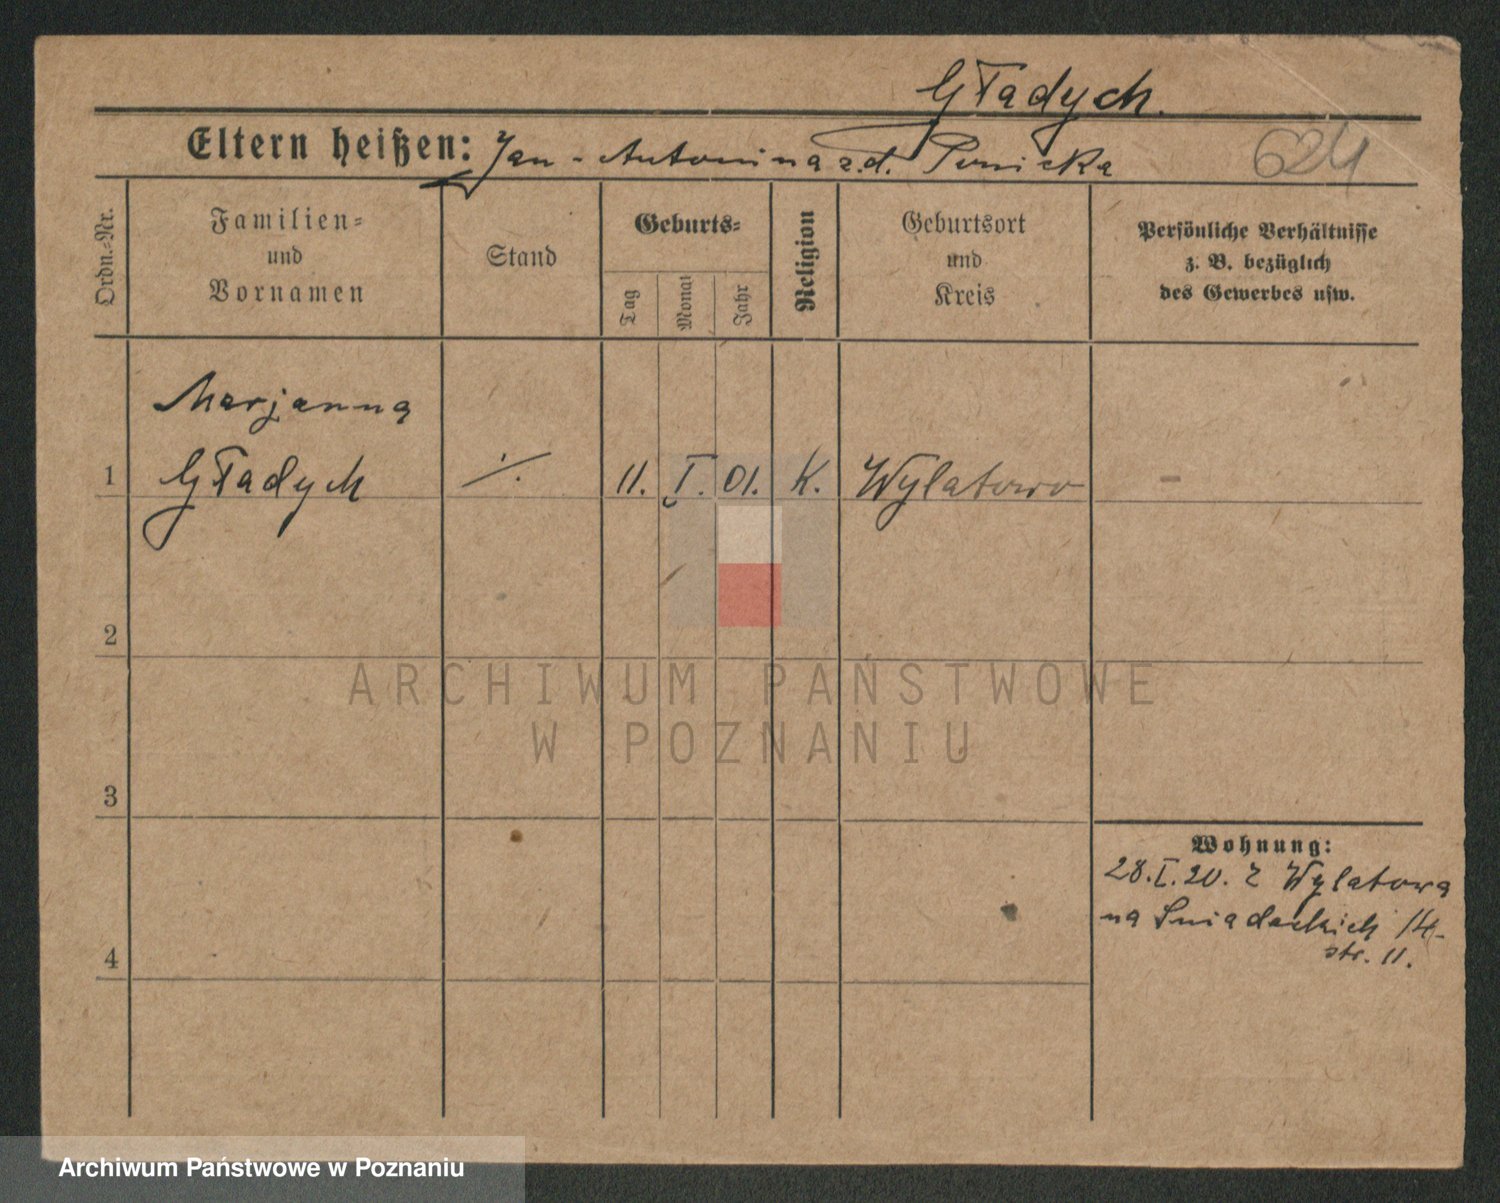 Gładych.
624
Eltern heißen: Jan - Antonina z.d. Punicka
Ordn.-Nr.
Familien-
und
Vornamen
Stand
Geburts-
Tag
Monat
Jahr
Religion
Geburtsort
und
Kreis
Persönliche Verhältnisse
z. B. bezüglich
des Gewerbes usw.
Marjanna
1 Gładych ·/. 11. I. 01. K. Wylatowo -
2
3
4
Wohnung:
28.I.20. z Wylatowa
na Śniadeckich 14-
str. 11.
ARCHIWUM PAŃSTWOWE
W POZNANIU
Archiwum Państwowe w Poznaniu